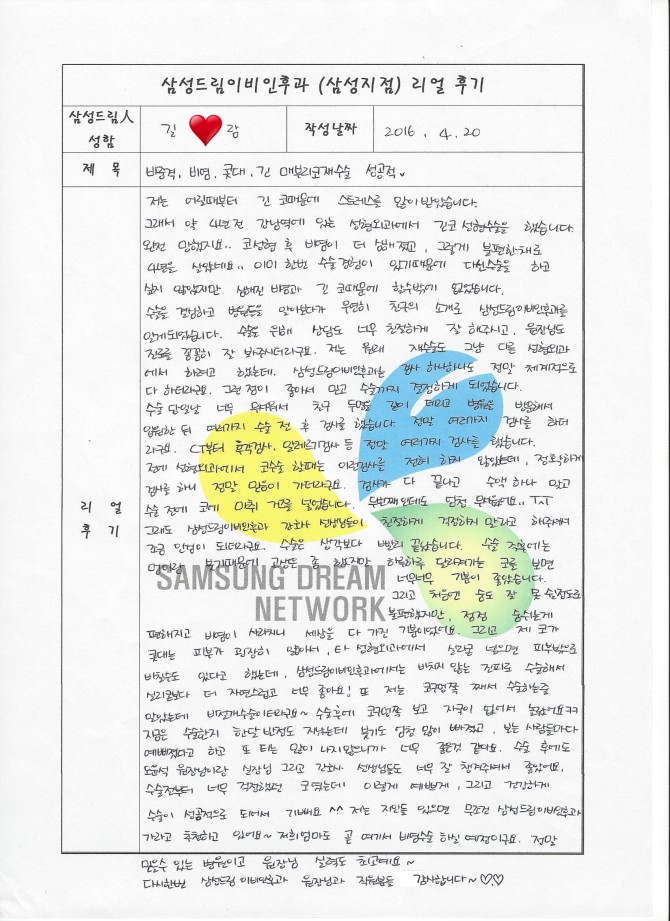 삼성드림이비인후과 (삼성지점) 리얼 후기
삼성드림人 성함
길 ♥ 람
작성날짜
2016. 4. 20
제 목
비중격, 비염, 콧대, 긴 매부리코재수술 성공적
리 얼 후 기
저는 어릴때부터 긴 코때문에 스트레스를 많이 받았습니다.
그래서 약 4년전 강남역에 있는 성형외과에서 긴코 성형수술을 했습니다
완전 망했지요.. 코성형 후 비염이 더 심해졌고, 그렇게 불편한채로
4년을 살았네요.. 이미 한번 수술경험이 있기때문에 다신수술을 하고
싶지 않았지만 심해진 비염과 긴 코때문에 할수밖에 없었습니다.
수술을 결심하고 병원들을 알아보다가 우연히 친구의 소개로 삼성드림이비인후과를
알게되었습니다. 수술을 위해 상담도 너무 친절하게 잘 해주시고, 원장님도
진료를 꼼꼼히 잘 봐주시더라구요. 저는 원래 재수술도 그냥 다른 성형외과
에서 하려고 했는데. 삼성드림이비인후과는 검사 하나하나도 정말 체계적으로
다 하더라구요. 그런 점이 좋아서 믿고 수술까지 결정하게 되었습니다.
수술 당일날 너무 무서워서 친구 두명을 같이 데리고 병원을 방문해서
입원한 뒤 여러가지 수술 전 후 검사를 했습니다. 정말 여러가지 검사를 하더
라구요. CT부터 후각검사, 알레르기검사 등 정말 여러가지 검사를 했습니다.
전에 성형외과에서 코수술 할때는 이런검사를 전혀 하지 않았는데, 정확하게
검사를 하니 정말 믿음이 가더라구요. 검사가 다 끝나고 수액 하나 맞고
수술 전에 코에 마취 거즈를 넣었습니다. 두번째인데도 엄청 무서웠네요.. T.T
그래도 삼성드림이비인후과 간호사 선생님들이 친절하게 걱정하지 말라고 해주셔서
조금 안심이 되더라구요. 수술은 생각보다 빨리 끝났습니다. 수술 직후에는
멍이랑 붓기때문에 고생도 좀 했지만 하루하루 달라져가는 코를 보면
너무너무 기분이 좋았습니다.
SAMSUNG DREAM
NETWORK
그리고 처음엔 숨도 잘 못 쉴정도로
불편했지만, 점점 숨쉬는게
편해지고 비염이 사라지니 세상을 다 가진 기분이었어요. 그리고 제 코가
콧대는 피부가 굉장히 얇아서, 타 성형외과에서 실리콘 넣으면 피부밖으로
비칠수도 있다고 했는데, 삼성드림이비인후과에서는 비치지 않는 진피로 수술해서
실리콘보다 더 자연스럽고 너무 좋아요! 또 저는 코구멍쪽 째서 수술하는줄
알았는데 비절개수술이더라구요~ 수술후에 코구멍쪽 보고 자국이 없어서 놀랐어요ㅋㅋ
지금은 수술한지 한달 반정도 지났는데 붓기도 엄청 많이 빠졌고, 보는 사람들마다
예뻐졌다고 하고 또 티는 많이 나지않으니까 너무 좋은것 같아요. 수술 후에도
원장님이랑 실장님 그리고 간호사 선생님들도 너무 잘 챙겨주셔서 좋았어요.
수술전부터 너무 걱정했던 코였는데 이렇게 예쁘게, 그리고 건강하게
수술이 성공적으로 되어서 기뻐요 ^^ 저는 지인들 있으면 무조건 삼성드림이비인후과
가라고 추천하고 있어요~ 저희엄마도 곧 여기서 비염수술 하실 예정이구요. 정말
믿을수 있는 병원이고 원장님 실력도 최고예요~
다시한번 삼성드림이비인후과 원장님과 직원분들 감사합니다~ ♡♡